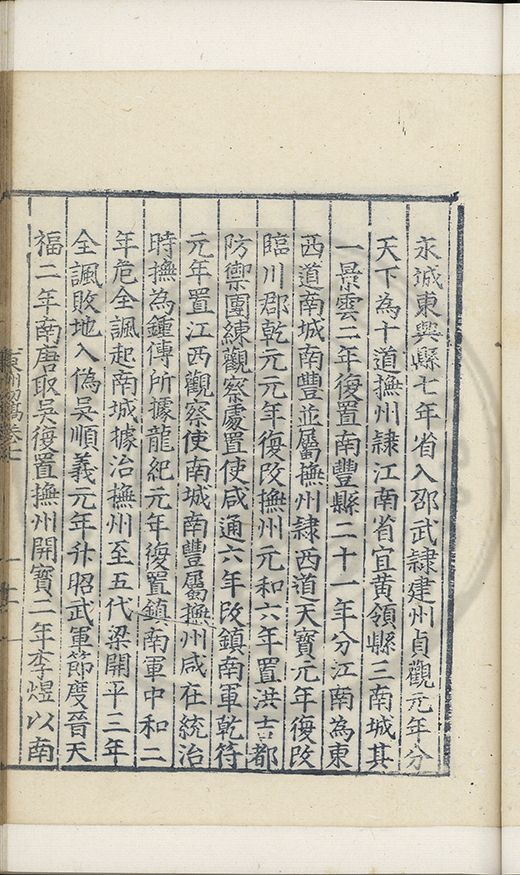 永城東興縣七年省入邵武隷建州貞觀元年分
天下為十道撫州隷江南省宜黄領縣三南城其
一景雲二年復置南豐縣二十一年分江南為東
西道南城南豐並屬撫州隷西道天寶元年復改
臨川郡乾元元年復改撫州元和六年置洪吉都
防禦團練觀察處置使咸通六年改鎮南軍乾符
元年置江西觀察使南城南豐屬撫州咸在統治
時撫為鍾傳所據龍紀元年復置鎮南軍中和二
年危全諷起南城據治撫州至五代梁開平三年
全諷敗地入偽吳順義元年升昭武軍節度晉天
福二年南唐取吳復置撫州開寶二年李煜以南